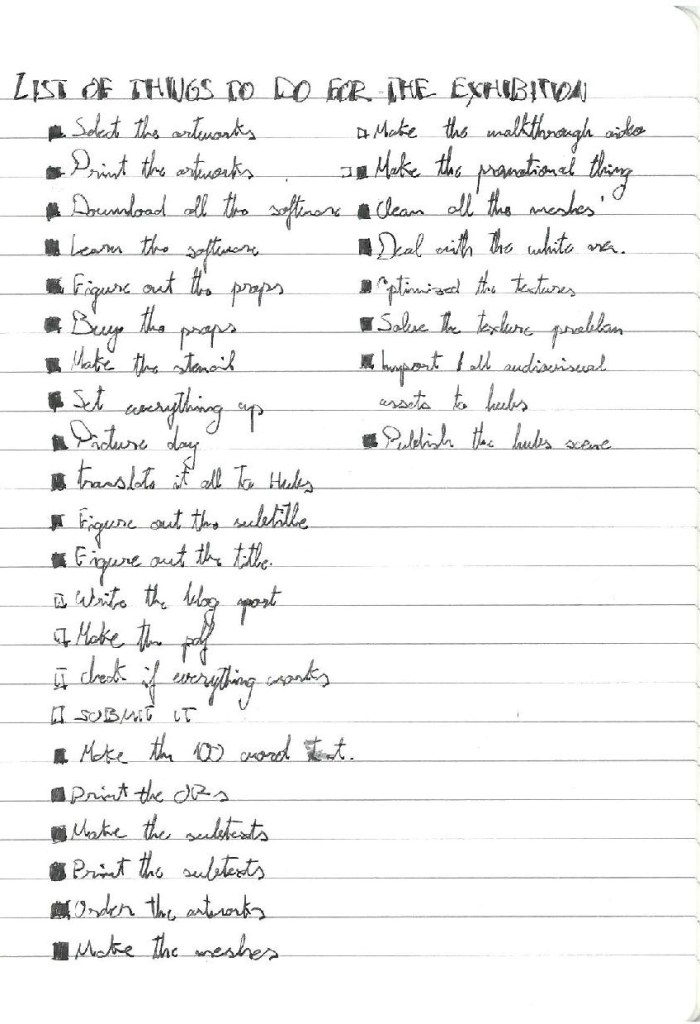 LIST OF THINGS TO DO FOR THE EXHIBITION
Select the artworks
Print the artworks
Download all the software
Learn the software
Figure out the props
Buy the props
Make the stencil
Set everything up
Picture day
translate it all to Hubs
Figure out the subtitle
Figure out the title.
Write the blog post
Make the pdf
check if everything works
SUBMIT IT
Make the 100 word text.
Print the QRs
Make the subtexts
Print the subtexts
Order the artworks
Make the meshes
Make the walkthrough video
Make the promotional thing
Clean all the meshes
Deal with the white
Optimized the textures
Solve the texture problem
Import all audiovisual
assets to hubs
Publish the hubs scene